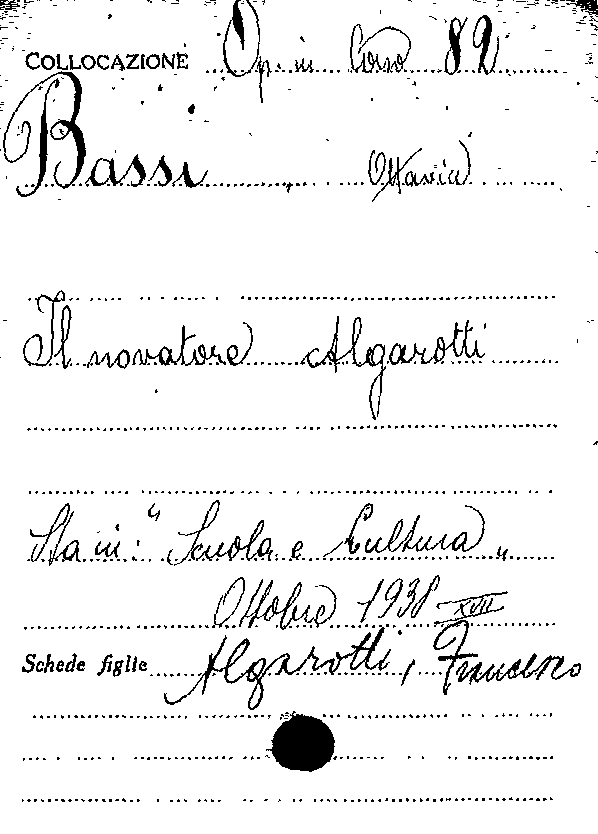 COLLOCAZIONE Op. in Corso 82
Bassi Ottavia
Il novatore Algarotti
Sta in: "Scuola e Cultura„
Ottobre 1938-XVII
Schede figlie Algarotti, Francesco